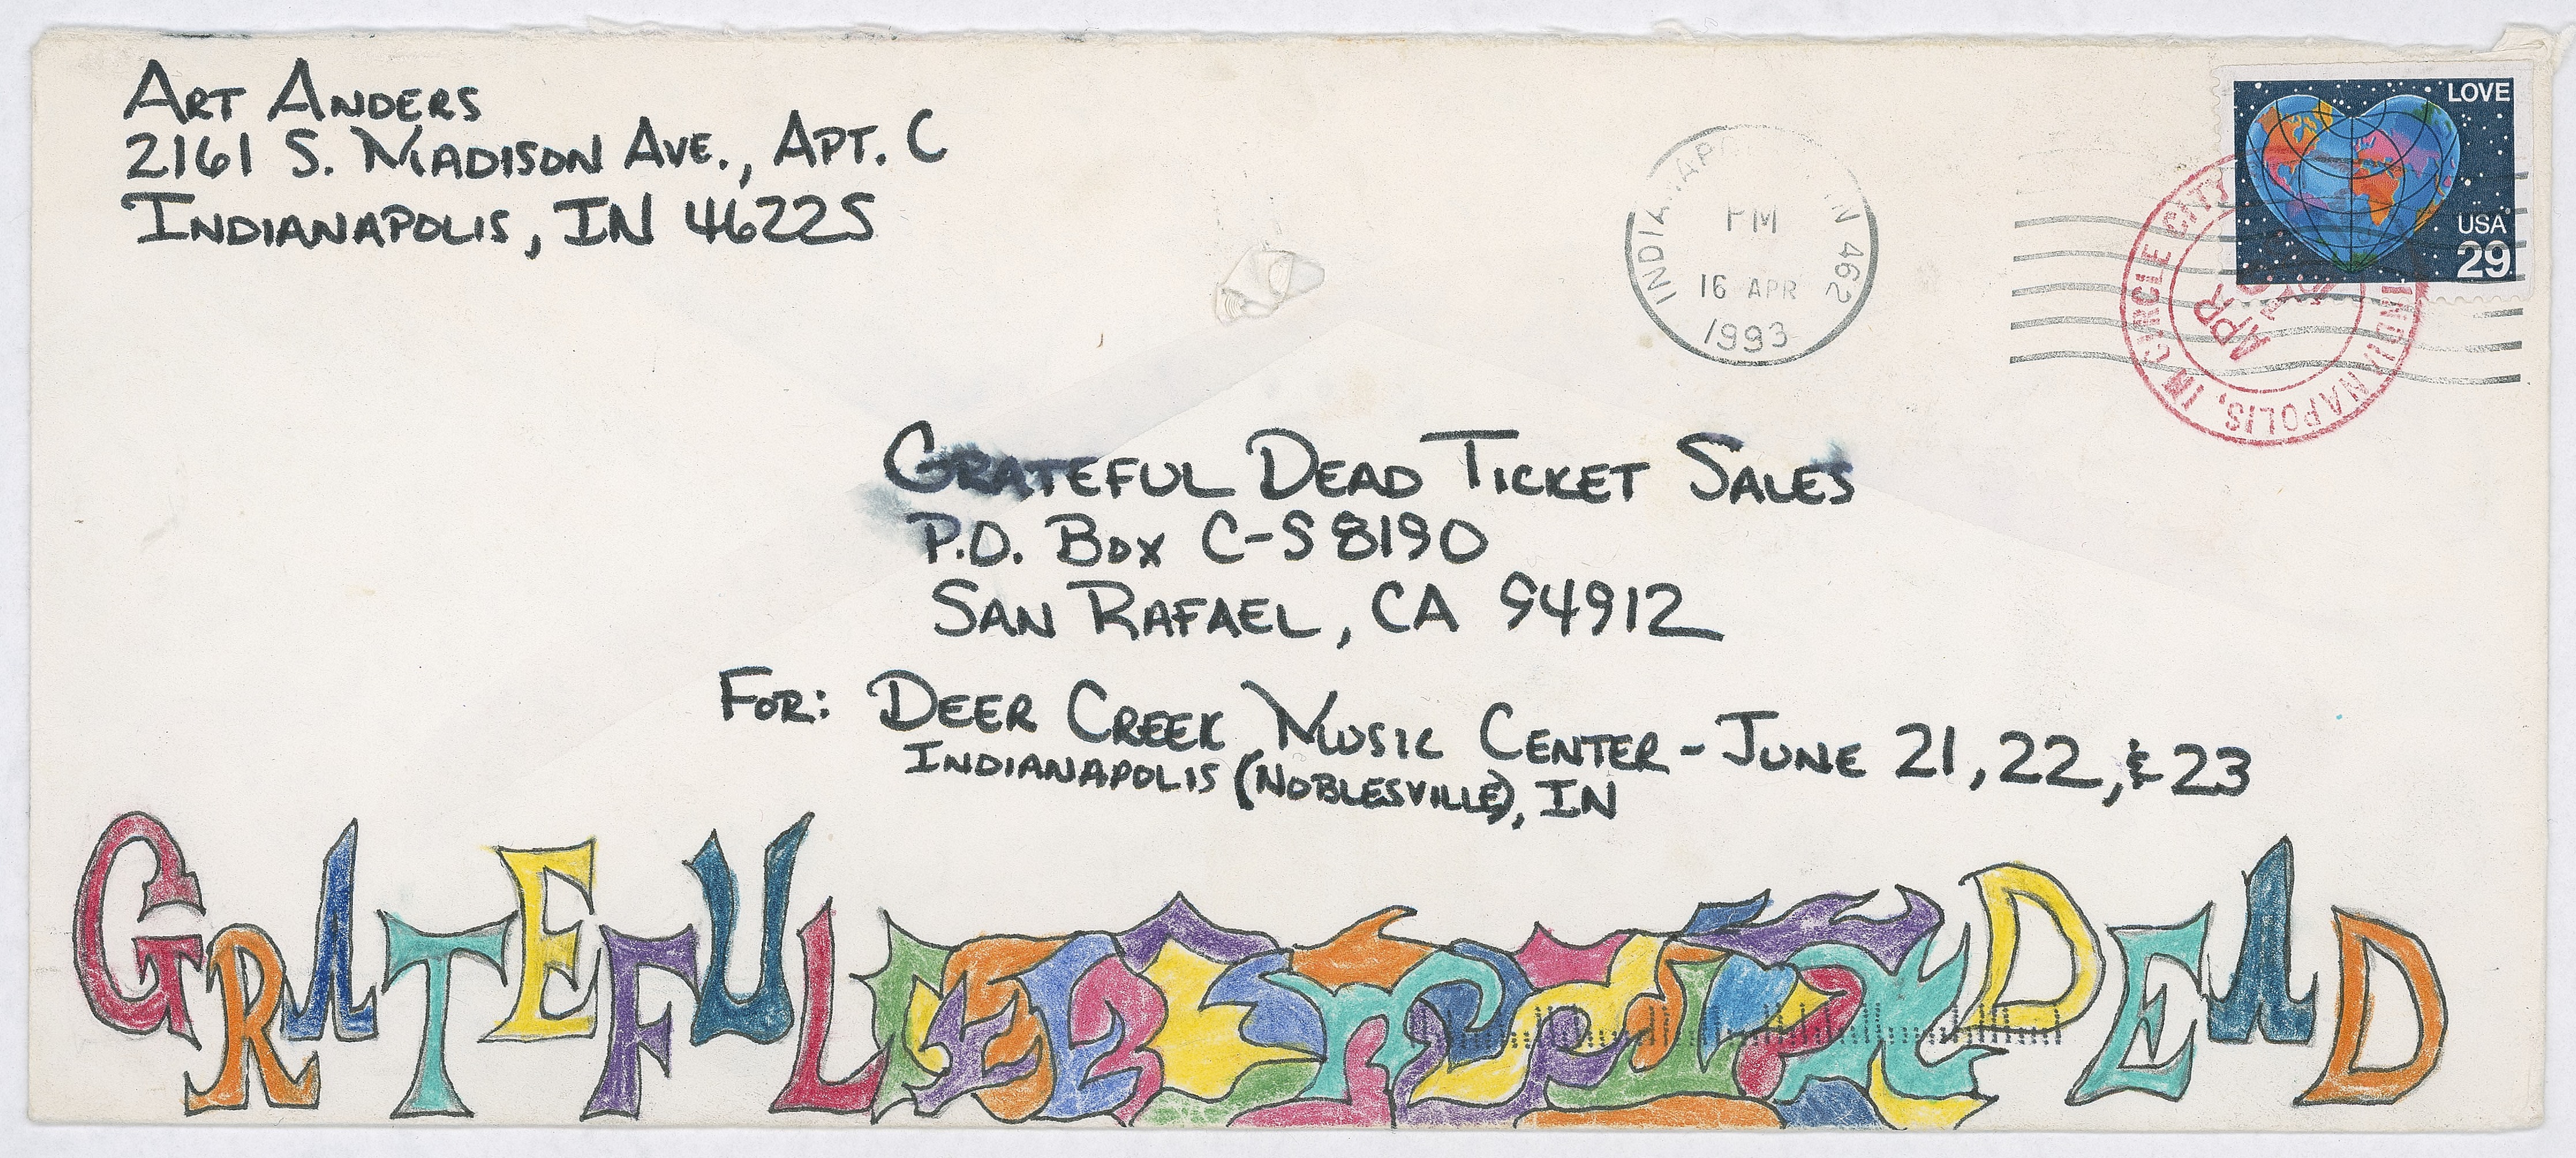 ART ANDERS
2161 S. MADISON AVE., APT. C
INDIANAPOLIS, IN 46225
LOVE
USA
29
IN 462
PM
16 APR
1993
INDIANAPOLIS, IN CIRCLE CITY
APR
GRATEFUL DEAD TICKET SALES
P.O. BOX C-S 8190
SAN RAFAEL, CA 94912
FOR: DEER CREEK MUSIC CENTER - JUNE 21, 22, & 23
INDIANAPOLIS (NOBLESVILLE), IN
GRATEFUL DEAD